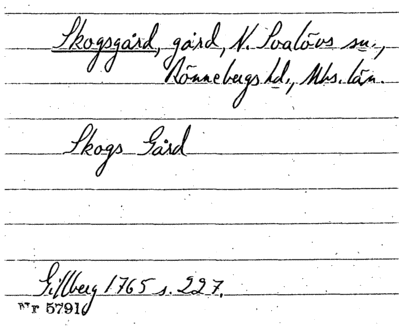 Skogsgård, gård, N. Svalövs sn.,
Rönnebergs hd., Mhs. län.
Skogs Gård
Gillberg 1765 s. 227.
r 5791